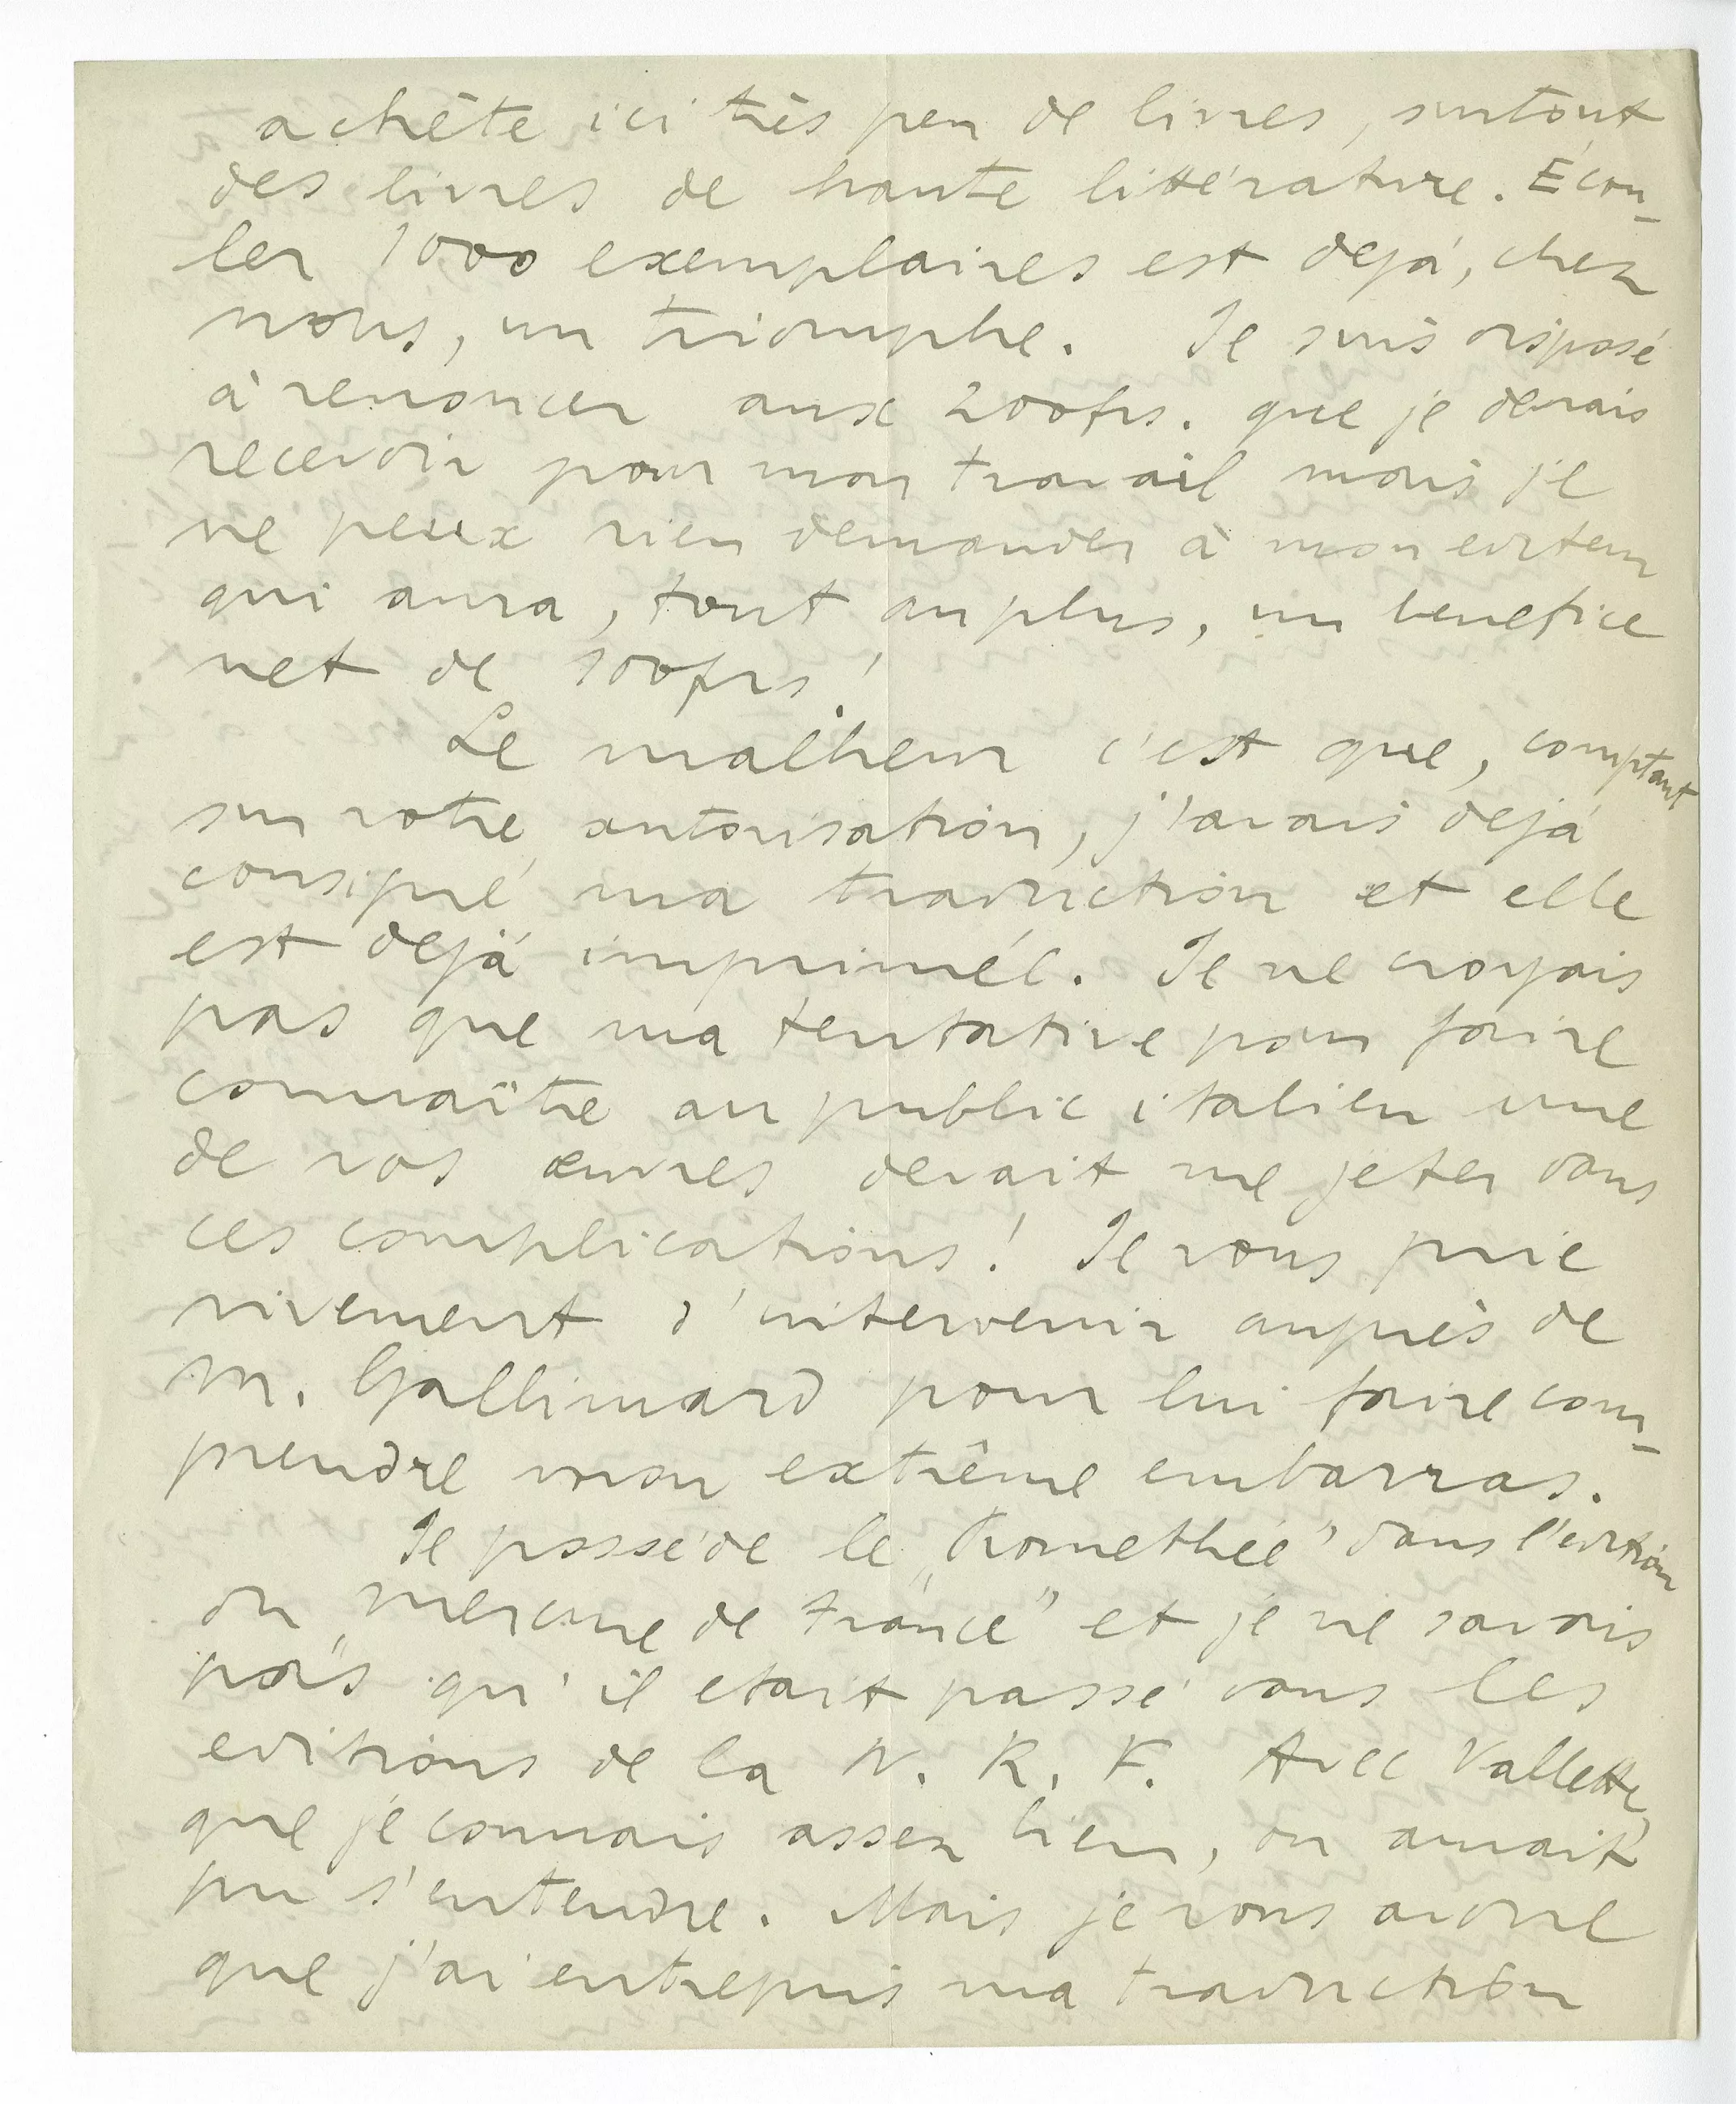 achète ici très peu de livres, surtout
des livres de haute littérature. Écou-
ler 1000 exemplaires est dejà, chez
nous, un triomphe. Je suis disposé
à renoncer aux 200frs. que je devrais
recevoir pour mon travail mais je
ne peux rien demander à mon editeur
qui aura, tout au plus, un benefice
net de 100frs!
Le malheur c'est que, comptant
sur votre autorisation, j'avais dejà
consigné ma traduction et elle
est dejà imprimée. Je ne croyais
pas que ma tentative pour faire
connaître au public italien une
de vos œuvres devait me jeter dans
ces complications! Je vous prie
vivement d'intervenir auprès de
M. Gallimard pour lui faire com-
prendre mon extrême embarras.
Je possède le „Promethée" dans l'edition
du „Mercure de France" et je ne savais
pas qu'il etait passé dans les
editions de la N. R. F. Avec Vallette,
que je connais assez bien, on aurait
pu s'entendre. Mais je vous avoue
que j'ai entrepris ma traduction